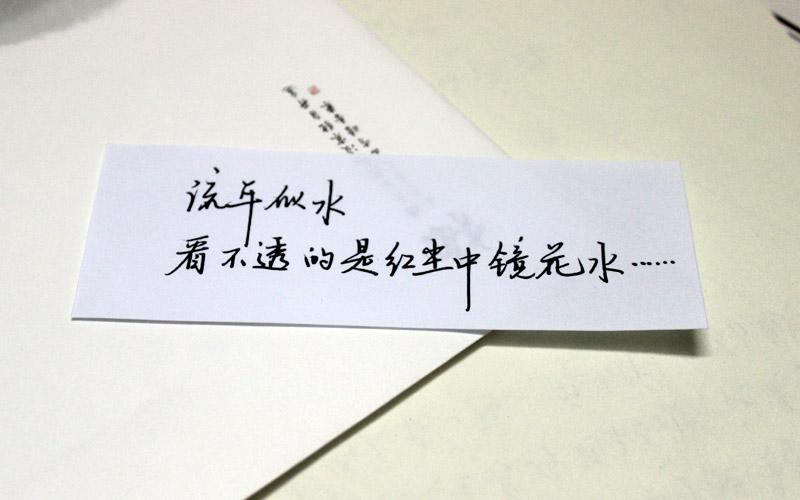 流年似水
看不透的是红尘中镜花水……